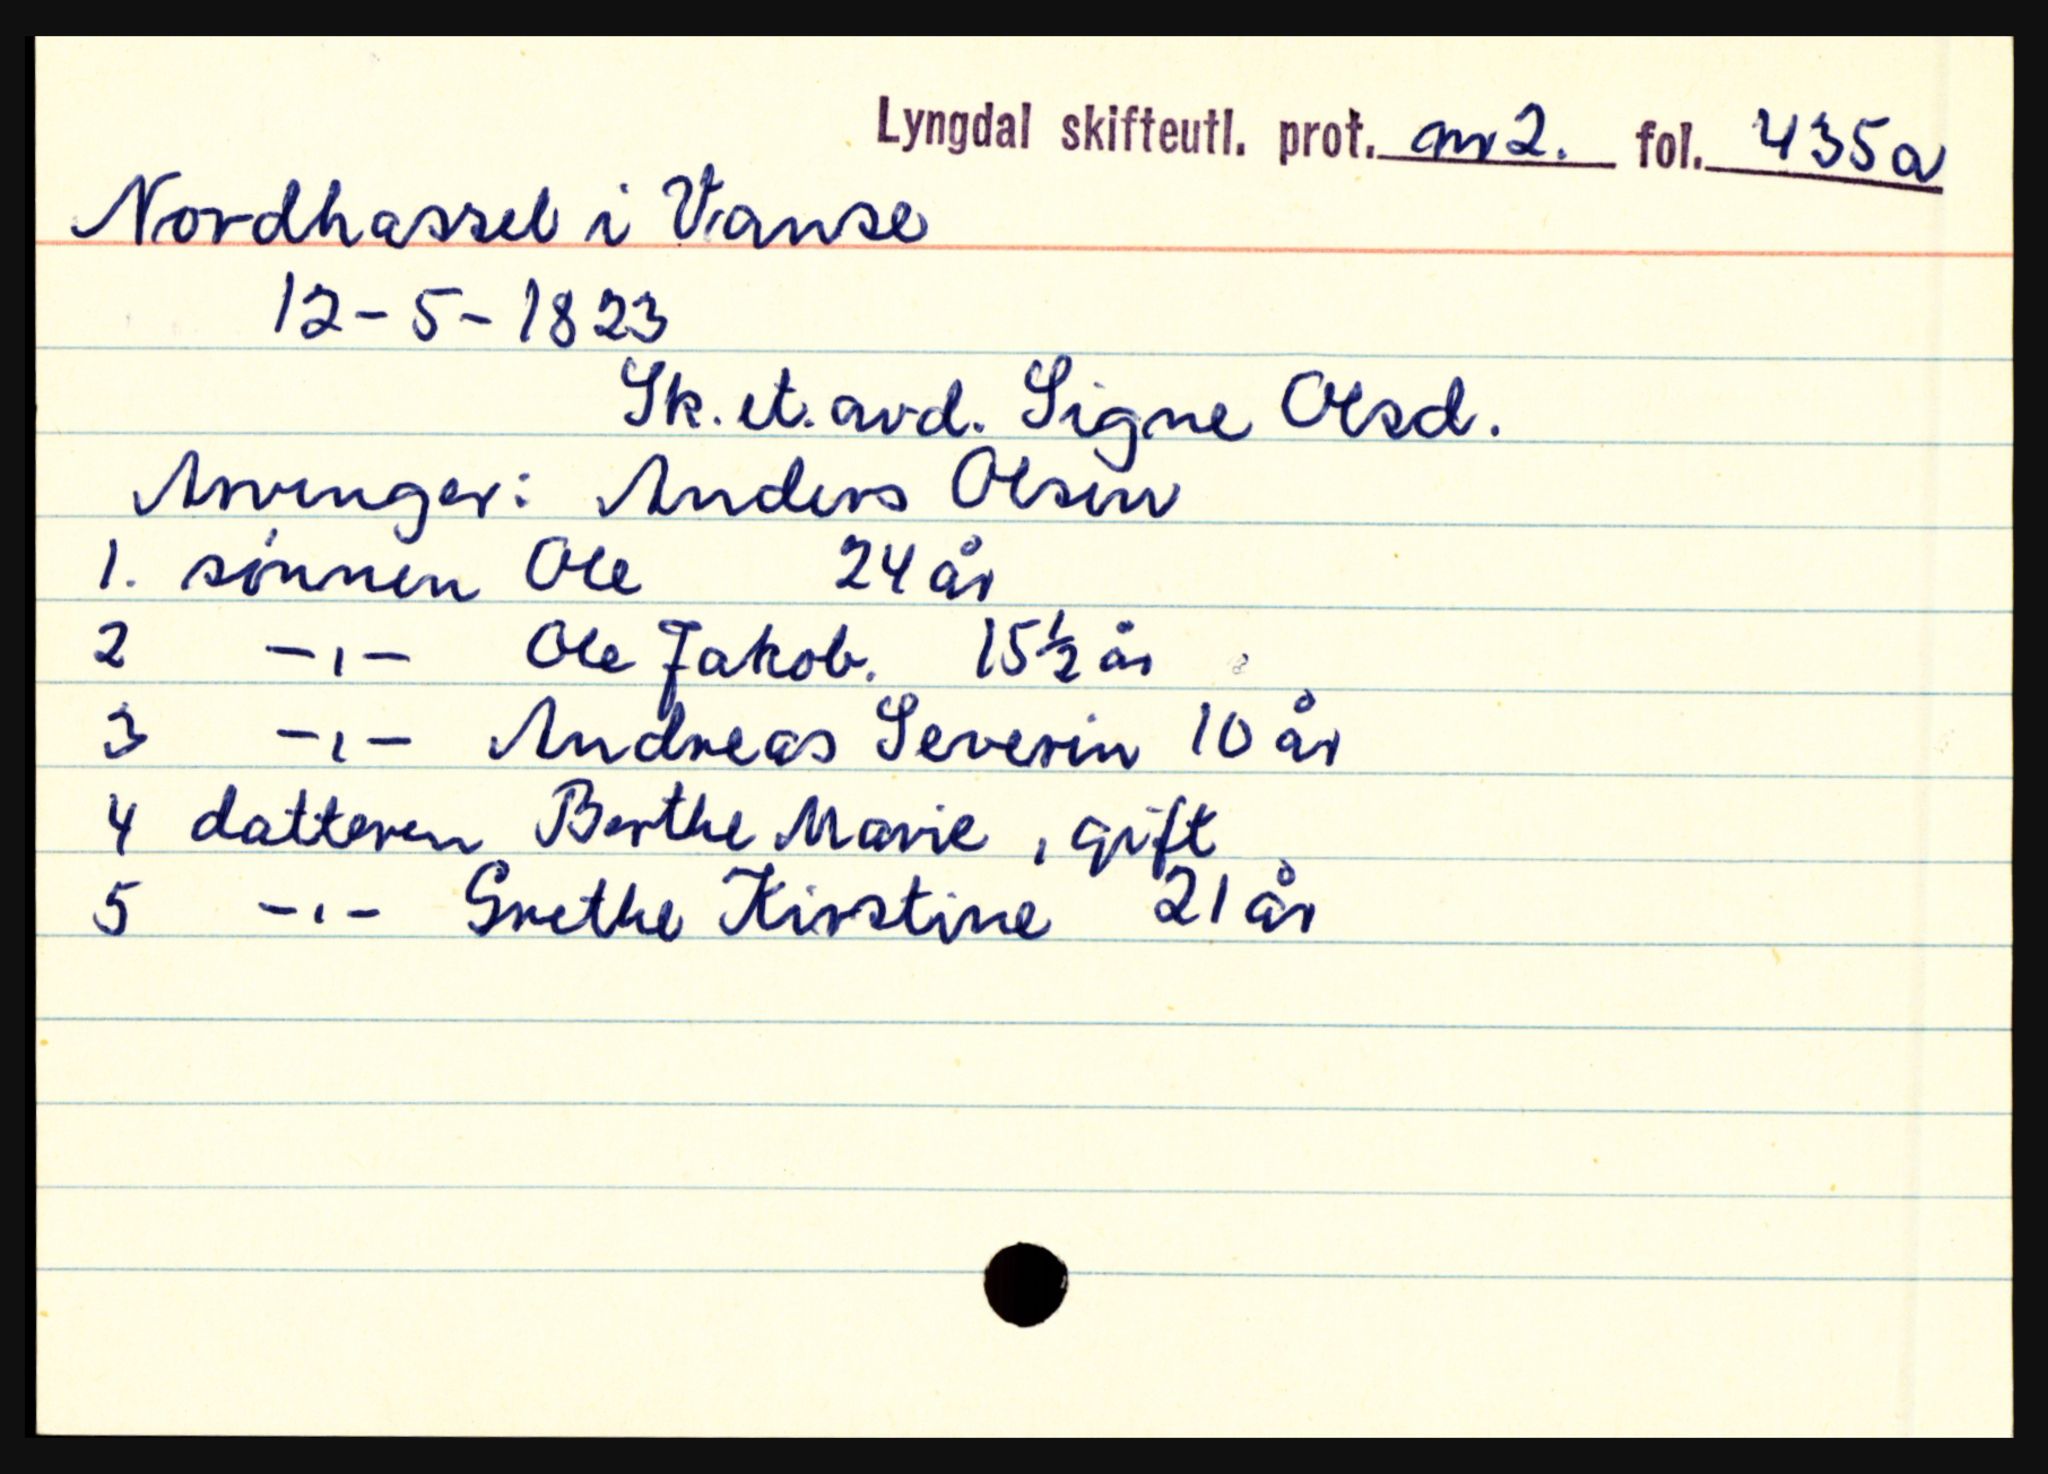 Lyngdal skifteutl. prot. nr 2. fol. 435a
Nordhassel i Vanse
12-5-1823
Sk. et. avd. Signe Olsd.
Arvinger: Anders Olsen
1. sønnen Ole 24 år
2 -,- Ole Jakob. 15½ år
3 -,- Andreas Severin 10 år
4 datteren Berthe Marie, gift
5 -,- Grethe Kirstine 21 år